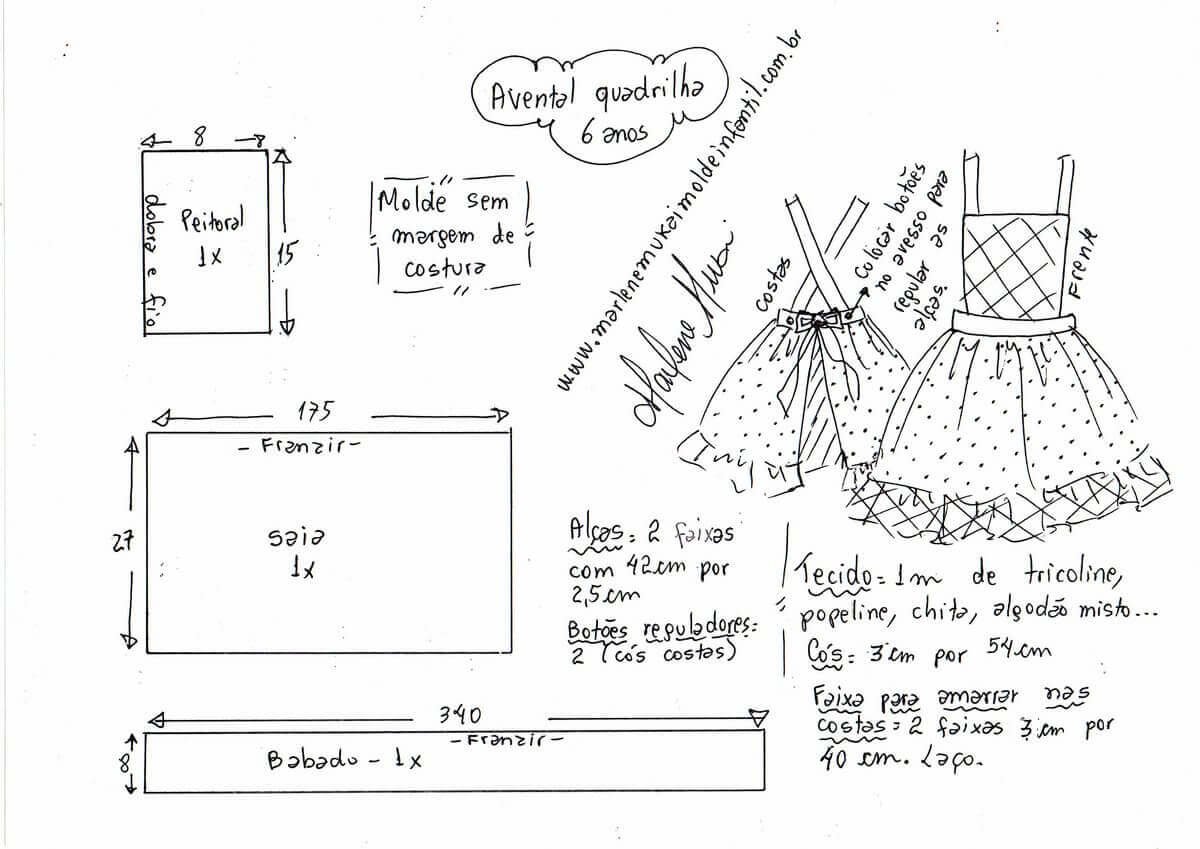 Avental quadrilha
6 anos
www.marlenemukaimoldeinfantil.com.br
8
Peitoral
1x
dobra e fio
15
Molde sem
margem de
costura
Marlene Mukai
costas
Colocar botões
no avesso para
regular as
alças.
Frente
175
- Franzir -
27
saia
1x
Alças = 2 faixas
com 42cm por
2,5cm
Botões reguladores=
2 (cós costas)
Tecido = 1m de tricoline,
popeline, chita, algodão misto...
Cós = 3 cm por 54cm
Faixa para amarrar nas
costas = 2 faixas 3 cm por
40 cm. Laço.
340
- Franzir -
8
Babado - 1x